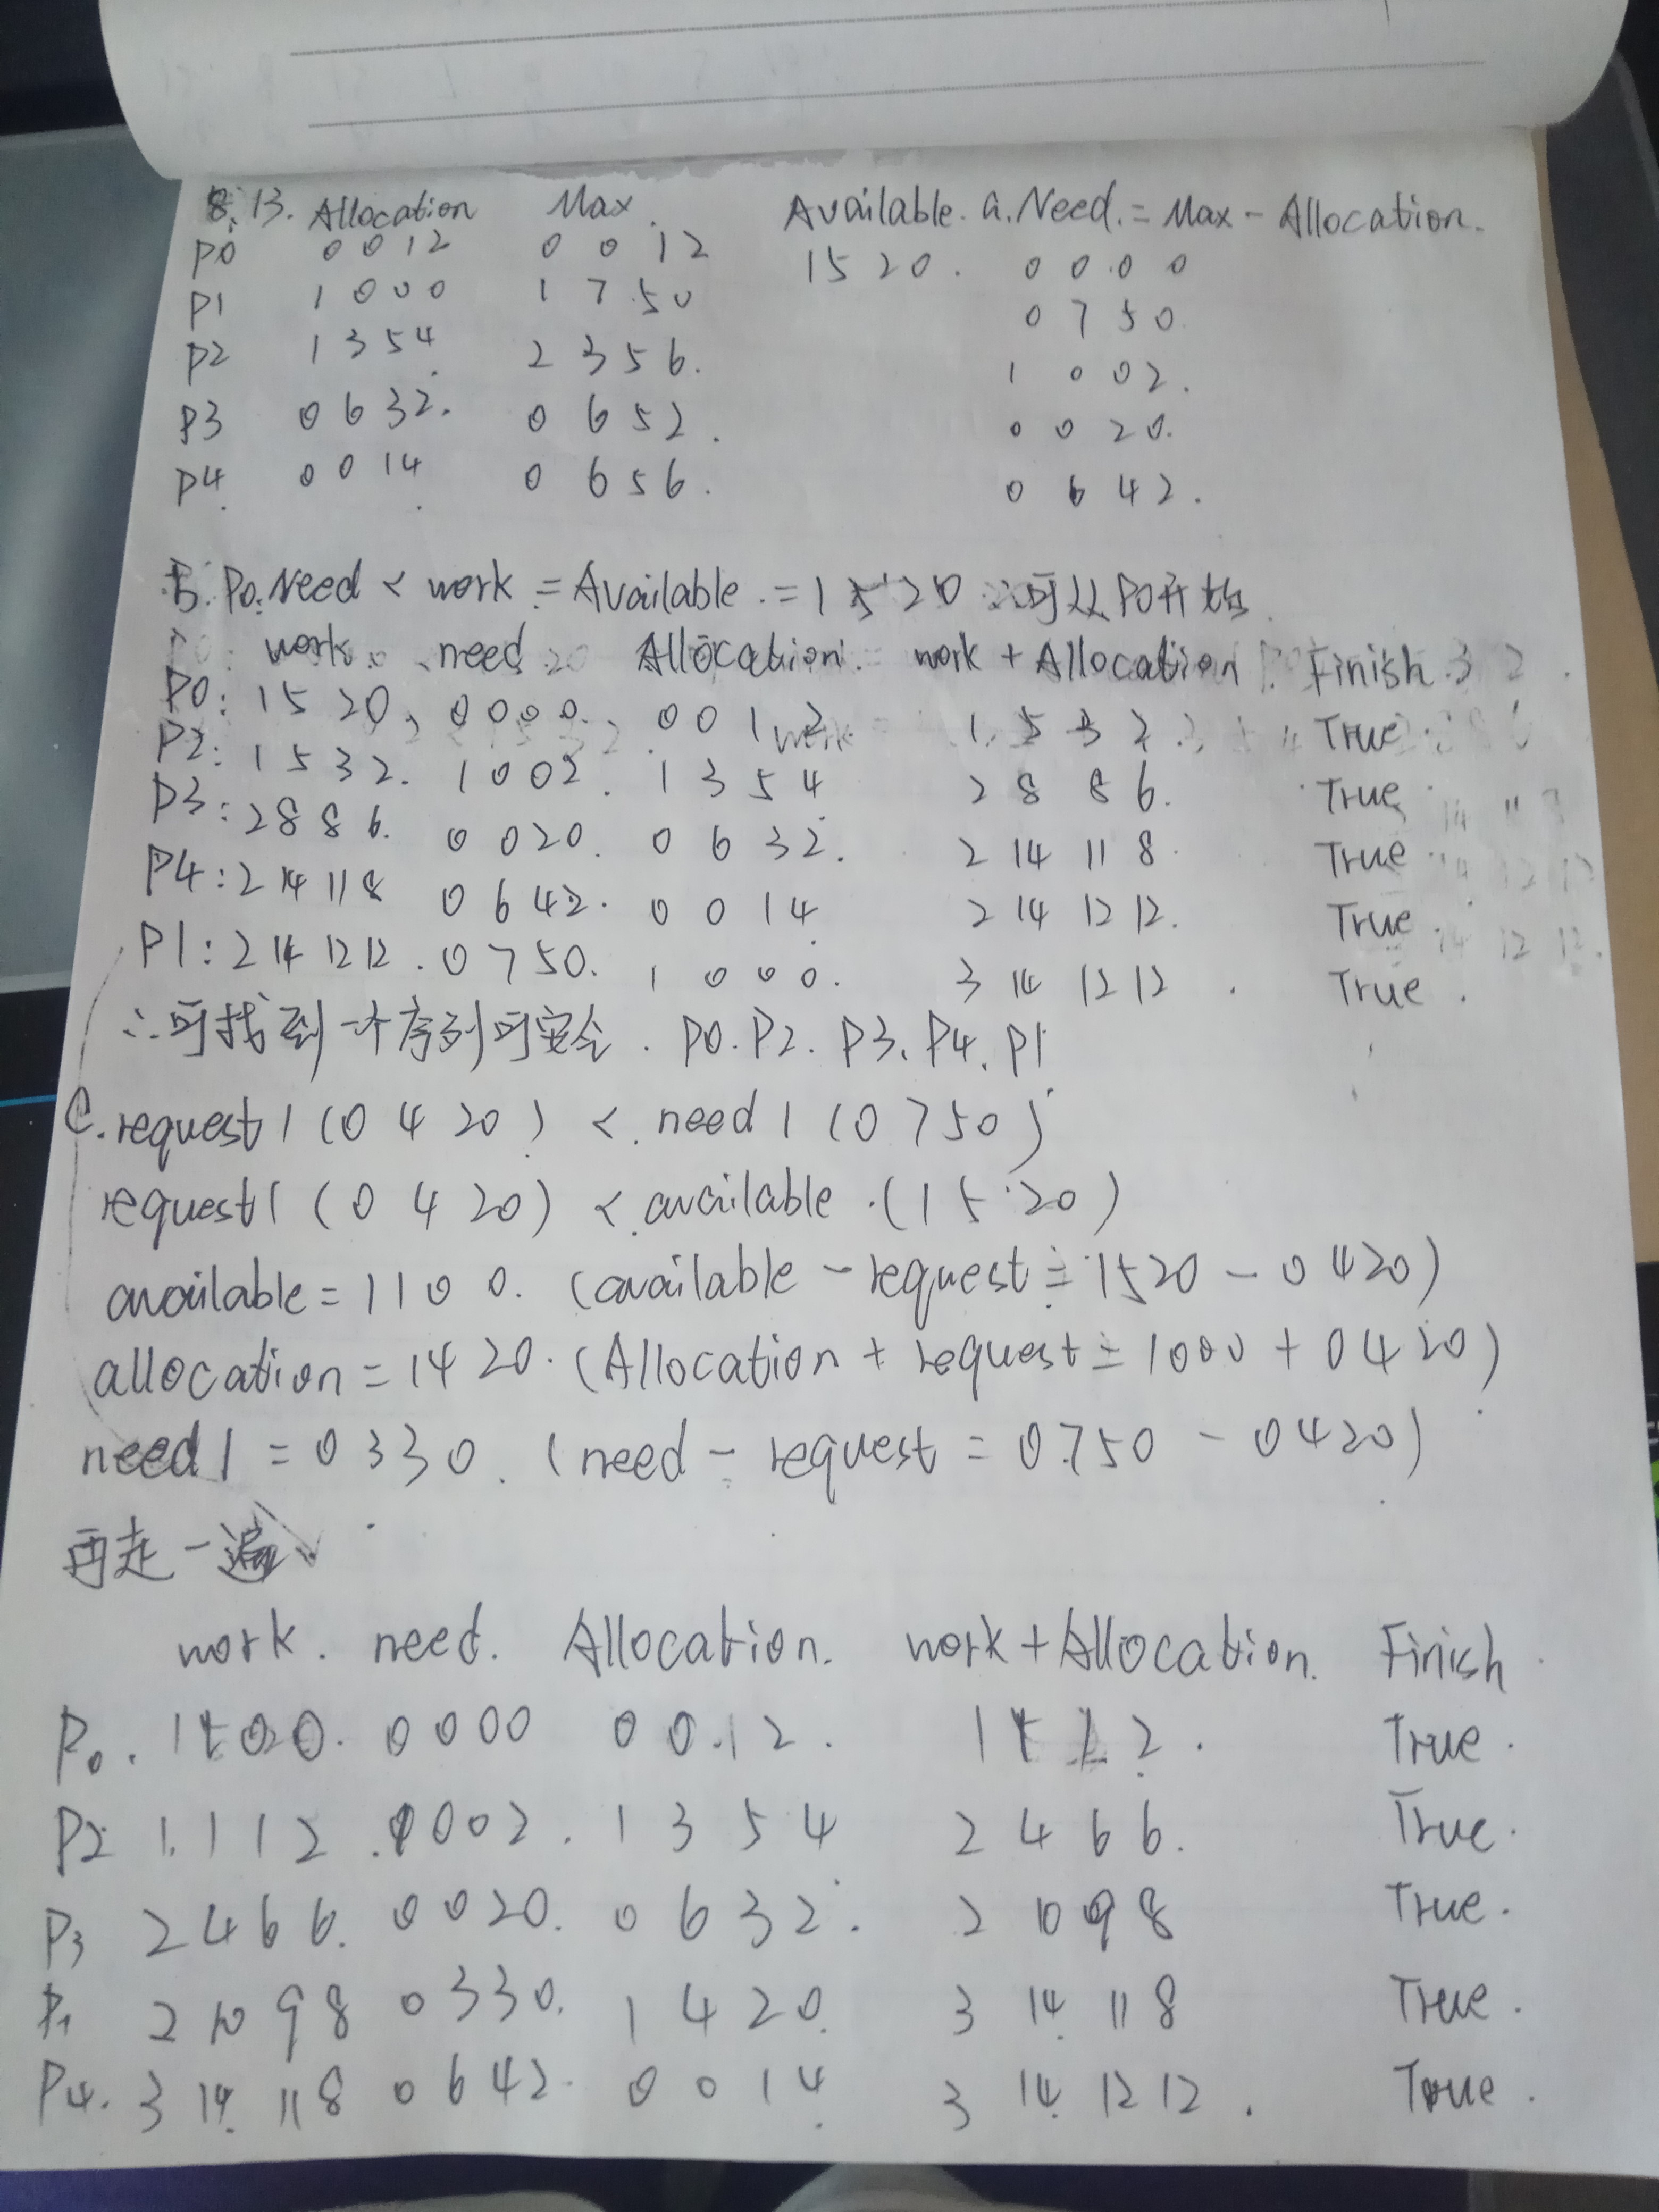 8.13. Allocation Max. Available. a. Need. = Max - Allocation.
P0 0 0 1 2 0 0 1 2 1 5 2 0. 0 0 0 0
P1 1 0 0 0 1 7 5 0 0 7 5 0.
P2 1 3 5 4 2 3 5 6. 1 0 0 2.
P3 0 6 3 2. 0 6 5 2. 0 0 2 0.
P4 0 0 1 4 0 6 5 6. 0 6 4 2.
b. P0. Need < work = Available. = 1 5 2 0 ∴可以从P0开始
work. need Allocation. work + Allocation Finish
P0: 1 5 2 0, 0 0 0 0, 0 0 1 2 1 5 3 2 True
P2: 1 5 3 2. 1 0 0 2. 1 3 5 4 2 8 8 6. True
P3: 2 8 8 6. 0 0 2 0. 0 6 3 2. 2 14 11 8 True
P4: 2 14 11 8 0 6 4 2. 0 0 1 4 2 14 12 12. True
P1: 2 14 12 12. 0 7 5 0. 1 0 0 0. 3 14 12 12. True.
∴可找到一个序列可安全. P0. P2. P3. P4. P1
C. request1 (0 4 2 0) < need1 (0 7 5 0)
request1 (0 4 2 0) < available. (1 5 2 0)
available = 1 1 0 0. (available - request = 1520 - 0420)
allocation = 1420. (Allocation + request = 1000 + 0420)
need1 = 0 3 3 0. (need - request = 0750 - 0420)
再走一遍
work. need. Allocation. work + Allocation. Finish
P0. 1 1 0 0. 0 0 0 0 0 0 1 2. 1 1 1 2. True.
P2 1 1 1 2. 1 0 0 2. 1 3 5 4 2 4 6 6. True.
P3 2 4 6 6. 0 0 2 0. 0 6 3 2. 2 10 9 8 True.
P1 2 10 9 8 0 3 3 0. 1 4 2 0. 3 14 11 8 True.
P4. 3 14 11 8 0 6 4 2. 0 0 1 4 3 14 12 12. True.